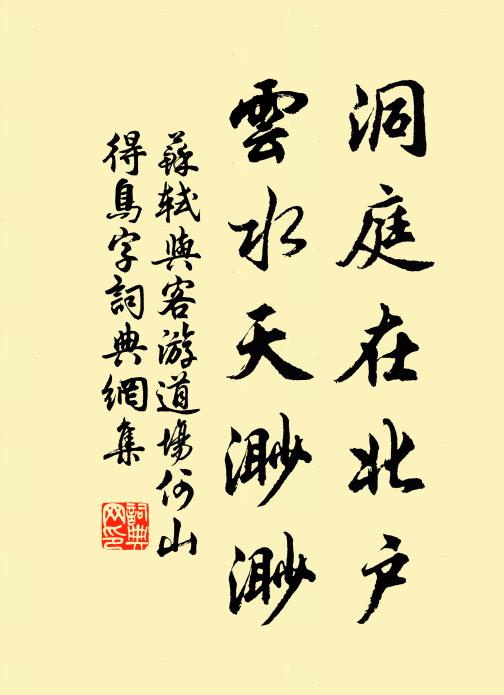 洞庭在北户
雲水天渺渺
蘇軾與客游道場何山
得鳥字詞典網集
詞典网印